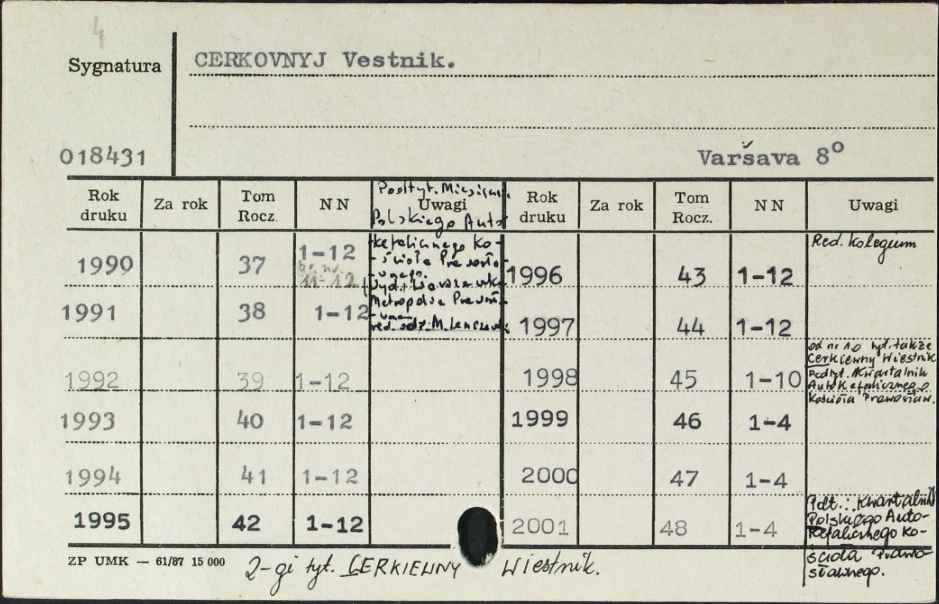 4
Sygnatura CERKOVNYJ Vestnik.
018431 Varšava 8°
Rok druku Za rok Tom Rocz. NN Uwagi Rok druku Za rok Tom Rocz. NN Uwagi
Podtyt. Miesięcz.
Polskiego Auto-
kefalicznego Ko-
ścioła Prawosła-
wnego.
Wyd.: Warszawska
Metropolia Prawosł-
red. odp. M. Lenczewski
1990 37 1-12
br. nr. 11-12
1991 38 1-12
1992 39 1-12
1993 40 1-12
1994 41 1-12
1995 42 1-12
1996 43 1-12 Red. Kolegium
1997 44 1-12
1998 45 1-10
od nr 10 tyt. także
Cerkiewny Wiestnik
Podtyt. Kwartalnik
Autokefalicznego
Kościoła Prawosław.
1999 46 1-4
2000 47 1-4
2001 48 1-4
Pdt.: Kwartalnik
Polskiego Auto-
kefalicznego Ko-
ścioła Prawo-
sławnego.
ZP UMK — 61/87 15 000 2-gi tyt. CERKIEWNY Wiestnik.